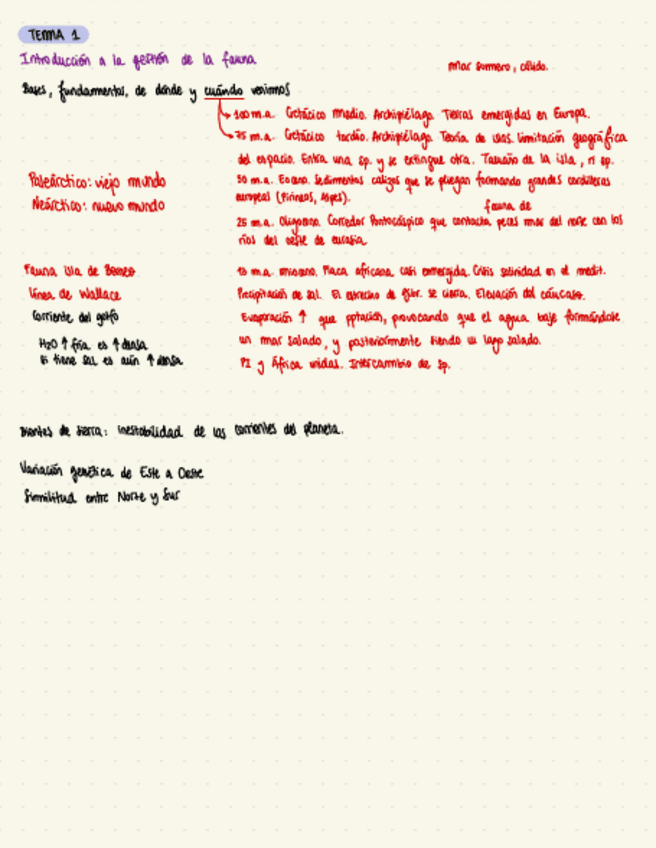 TEMA 1
Introducción a la gestión de la fauna
mar somero, cálido.
Bases, fundamentos, de dónde y cuándo venimos
100 m.a. Cretácico medio. Archipiélago. Tierras emergidas en Europa.
75 m.a. Cretácico tardío. Archipiélago. Teoría de islas. limitación geográfica
del espacio. Entra una sp. y se extingue otra. Tamaño de la isla, nº sp.
Paleártico: viejo mundo
Neártico: nuevo mundo
50 m.a. Eoceno. Sedimentos calizos que se pliegan formando grandes cordilleras
europeas (Pirineos, Alpes).
fauna de
25 m.a. Oligoceno. Corredor Pontocáspico que contacta peces mar del norte con los
ríos del oeste de eurasia
Fauna isla de Borneo
línea de Wallace
Corriente del golfo
H2O ↑ fría es ↑ densa
Si tiene sal es aún ↑ densa
mioceno. Placa africana casi emergida. Crisis salinidad en el medit.
Precipitación de sal. El estrecho de Gibr. se cierra. Elevación del cáucaso.
Evaporación ↑ que pptación, provocando que el agua baje formándose
un mar salado, y posteriormente siendo un lago salado.
PI y África unidas. Intercambio de sp.
Dientes de sierra: inestabilidad de las corrientes del planeta.
Variación genética de Este a Oeste
Similitud entre Norte y Sur